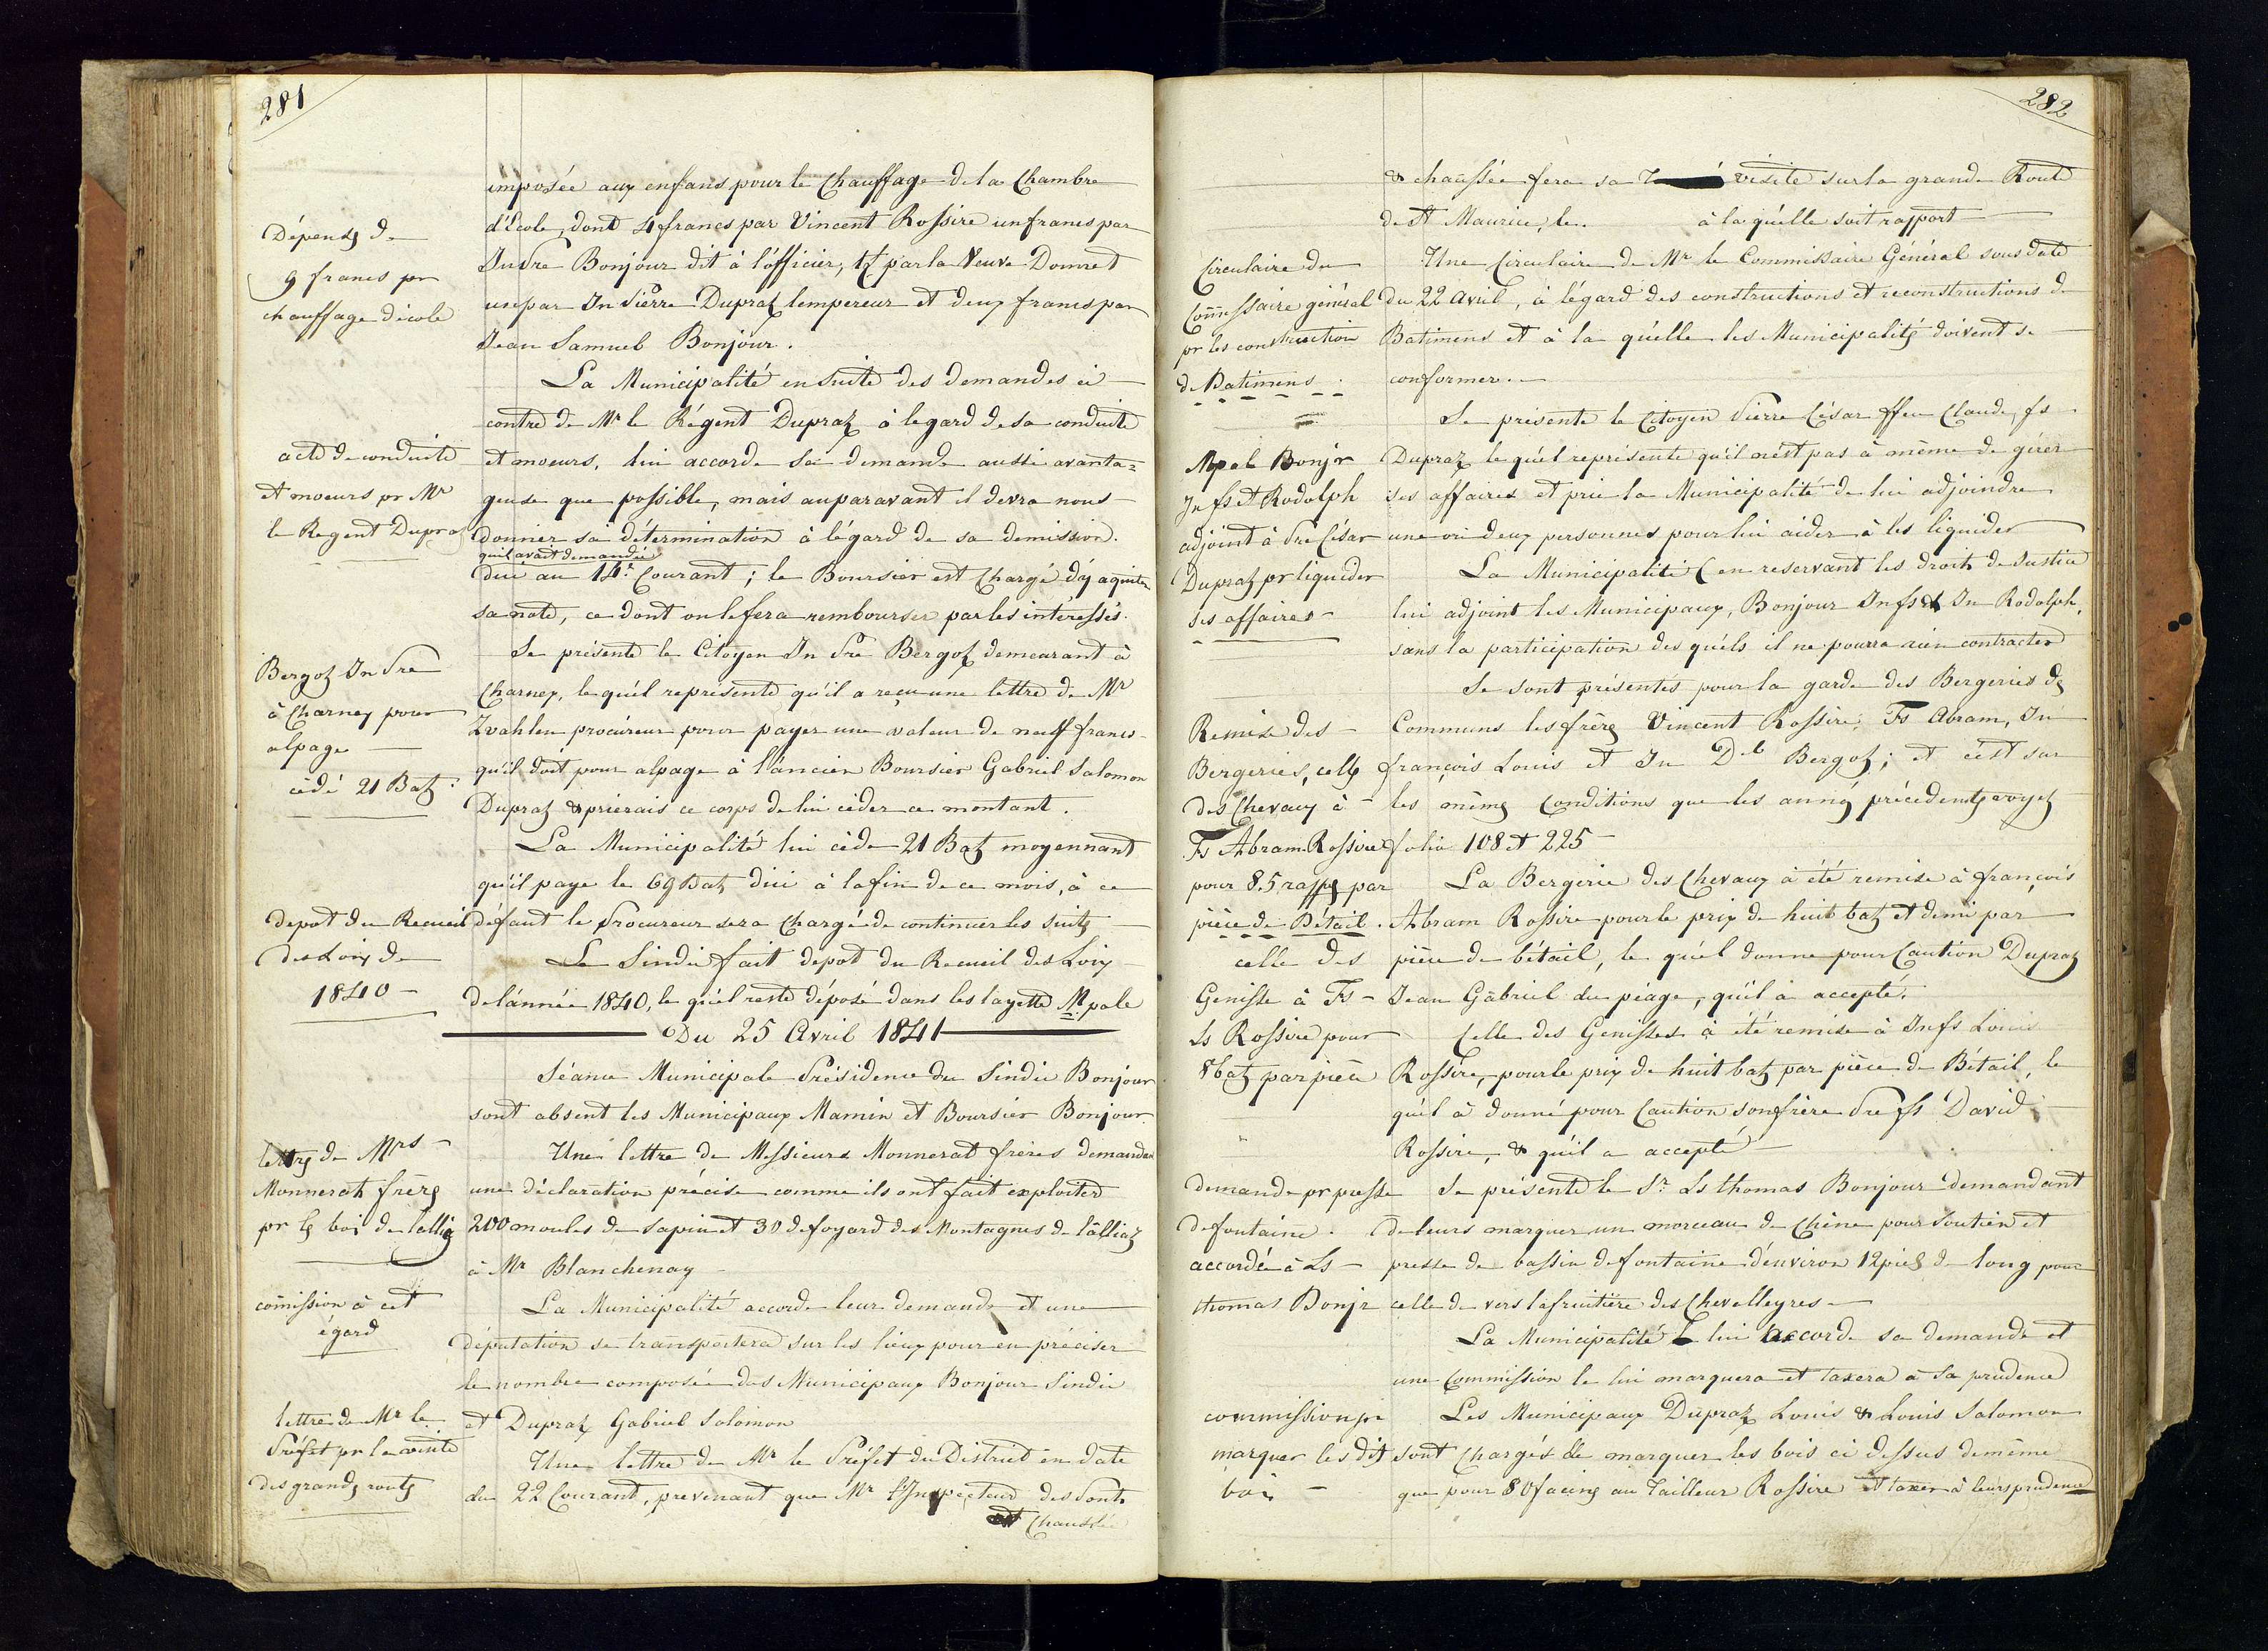 281
Dépense de
9 francs pr
chauffage d'école
acte de conduite
et moeurs pr Mr
le Regent Dupraz
Bergoz Jn Pre
à Charnex pour
alpage
cédé 21 Batz
depot du Recueil
des Loix de
1840
lettre de Mrs
Monnerat frères
pr le boi de lallia
comission à cet
égard
lettre de Mr le
Préfet pr la visite
des grandes routes
imposée aux enfans pour le Chauffage de la Chambre
d'Ecole, dont 4 francs par Vincent Rossire un franc par
Jn dre Bonjour dit à l'officier, par la Veuve
un par Jn Pierre Dupraz lempereur et deux francs par
Jean Samuel Bonjour.
La Municipalité ensuite des demandes ci
contre de Mr le Régent Dupraz à legard de sa conduite
et moeurs, lui accorde sa demande aussi avanta=
geuse que possible, mais auparavant il devra nous
donner sa détermination à légard de sa demission.
qu'il avait demandée
dici au 14e Courant; le Boursier est Chargé d'y aquiter
sa note, ce dont on le fera rembourser par les intéressés.
Se présente le Citoyen Jn Pre Bergoz demeurant à
Charnex, le quél représente qu'il a reçu une lettre de Mr
Zvahlen procureur pour payer une valeur de neuf francs
qu'il doit pour alpage à l'áncien Boursier Gabriel Salomon
Dupraz & prierais ce corps de lui céder ce montant.
La Municipalité lui cède 21 Batz moyennant
qu'il paye le 69 Batz dici à la fin de ce mois, à ce
défaut le Procureur sera Chargé de continuer les suites
Le Sindic fait depot du Recueil des Loix
de lánnée 1840, le quél reste déposé dans les layette Mpale
Du 25 Avril 1841
Séance Municipale Présidence du Sindic Bonjour
sont absent les Municipaux Mamin et Boursier Bonjour.
Une lettre de Messieurs Monnerat frères demande
une déclaration précise comme ils ont fait exploiter
200 moules de sapin et 30 de foyard des Montagnes de lálliaz
à Mr Blanchenay
La Municipalité accorde leur demande et une
députation se transportera sur les lieux pour en préciser
le nombre composée des Municipaux Bonjour Sindic
et Dupraz Gabriel Salomon
Une lettre de Mr le Préfet du District en date
du 22 Courant, prevenant que Mr l'Inspecteur des Ponts
et Chaussée
282
Circulaire du
Commissaire général
pr les construction
de Batimens.
Mpal Bonjr
Jn fs et Rodolph
adjoint à Pre César
Dupraz pr liquider
ses affaires
Remise des
Bergeries, celle
des Chevaux à
Fs Abram Rossire
pour 85 rapps par
pièce de Bétail.
celle des
Genisse à Fs
Ls Rossire pour
8 batz par pièce
demande pr presse
de fontaine.
accordé à Ls
thomas Bonjr
commission pr
marquer les dit
boi
& chaussée fera sa visite sur la grande Route
de St Maurice, le. à la quélle soit rapport
Une Circulaire de Mr le Commissaire Général sous date
du 22 avril, à légard des constructions et reconstructions de
Batimens et à la quélle les Municipalités doivent se
conformer.
Se présente le Citoyen Pierre César ffeu Claude fs
Dupraz le quél représente qu'il n'est pas à même de gérer
ses affaires et prie la Municipalité de lui adjoindre
une ou deux personnes pour lui aider à les liquider
La Municipalité (en reservant les droits de Justice
lui adjoint les Municipaux, Bonjour Jn fs & Jn Rodolph,
sans la participation des quéls il ne pourra rien contracter
Se sont présentés pour la garde des Bergeries des
Communs les frères Vincent Rossire, Fs Abram, Jn
françois Louis et Jn Dl Bergoz; et cést sur
les mêmes Conditions que les années précédentes voyez
folio 108 et 225
La Bergerie des Chevaux à été remise à françois
Abram Rossire pour le prix de huit batz et demi par
pièce de bétail, le quél donne pour Caution Dupraz
Jean Gabriel du péage, qu'il à accepté.
Celle des Genisses à été remise à Jn fs Louis
Rossire, pour le prix de huit batz par pièce de Bétail, le
quél à donné pour Caution son frère Pre fs David
Rossire, & qu'il a accepté
Se présente le Sr Ls thomas Bonjour demandant
de leurs marquer un morceau de Chêne pour Soutien et
presse de bassin de fontaine d'environ 12 pieds de long pour
celle de vers la fruitière des Chevalleyres
La Municipalité lui accorde sa demande et
une Commission le lui marquera et taxera à sa prudence
Les Municipaux Dupraz Louis & Louis Salomon
sont Chargés de marquer les bois ci dessus de même
que pour 80 facins au Tailleur Rossire et taxer à leurs prudence